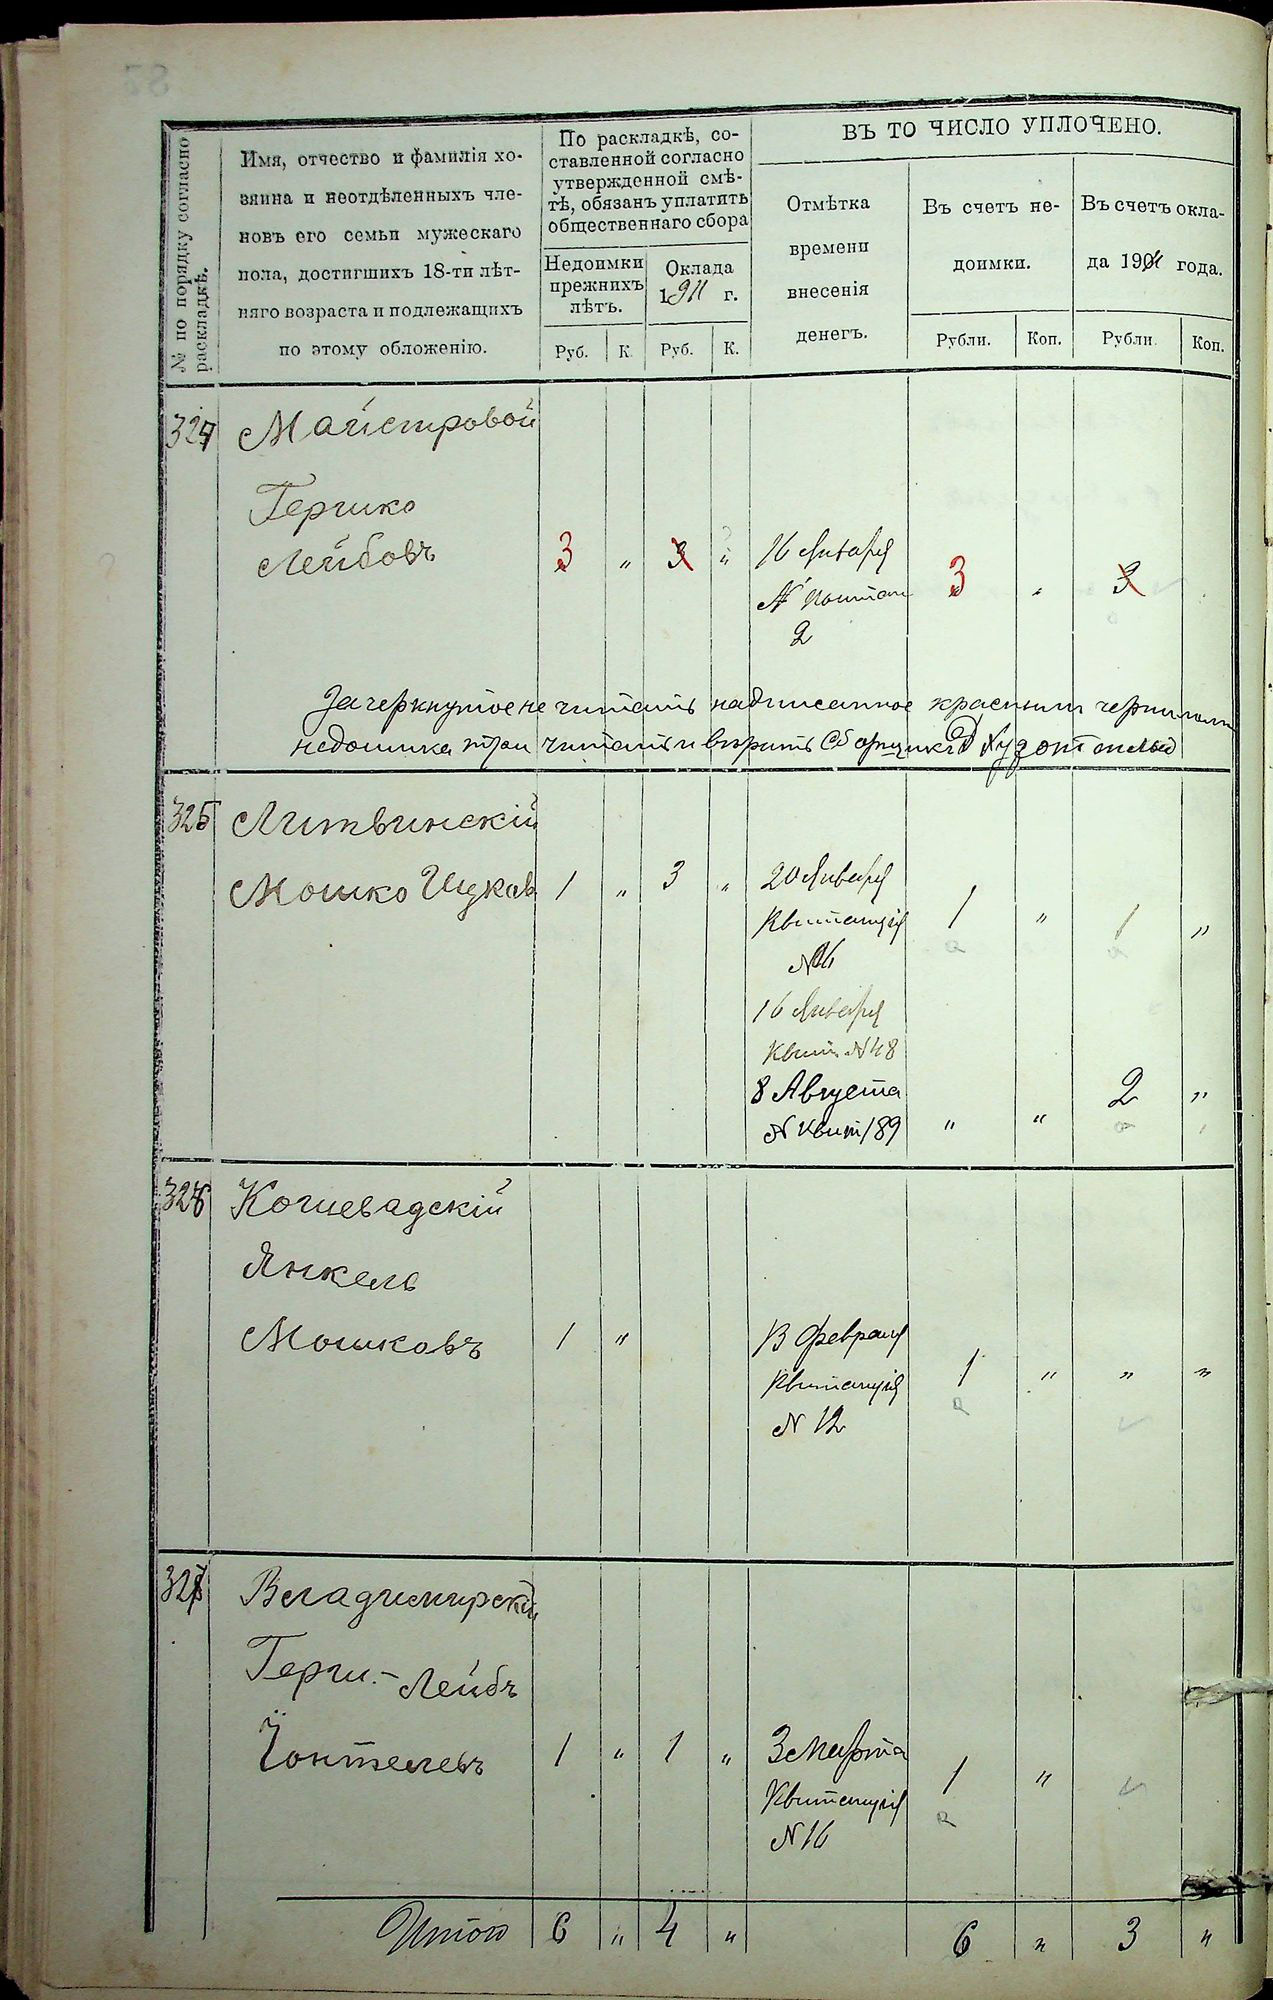 № по порядку согласно
раскладкѣ.
Имя, отчество и фамилія хо-
зяина и неотдѣленныхъ чле-
новъ его семьи мужескаго
пола, достигшихъ 18-ти лѣт-
няго возраста и подлежащихъ
по этому обложенію.
По раскладкѣ, со-
ставленной согласно
утвержденной смѣ-
тѣ, обязанъ уплатить
общественнаго сбора
Недоимки
прежнихъ
лѣтъ.
Оклада
1911 г.
Руб. К. Руб. К.
ВЪ ТО ЧИСЛО УПЛОЧЕНО.
Отмѣтка
времени
внесенія
денегъ.
Въ счетъ не-
доимки.
Въ счетъ окла-
да 1911 года.
Рубли. Коп. Рубли. Коп.
324 Майстровой
Гершко
Лейбовъ 3 " 3 " 16 Января 3 " 3
2
Зачеркнутое не читать надписанное красными чернилами
недоимка три читать и вѣрить Сборщикъ
325 Литвинскій
Мошко Ицков 1 " 3 " 20 Января
Квитанція 1 " 1 "
16 Января
Квит. N 48
8 Августа 2 "
N Квит 189 " "
326 Когневадскій
Янкель
Мошковъ 1 " 13 Февраля
Квитанція 1 " " "
N 12
327 Владимирскій
Герш-Лейбъ
Іонтелевъ 1 " 1 " 3 Марта
Квитанція 1 "
N 16
Итого 6 " 4 " 6 " 3 "